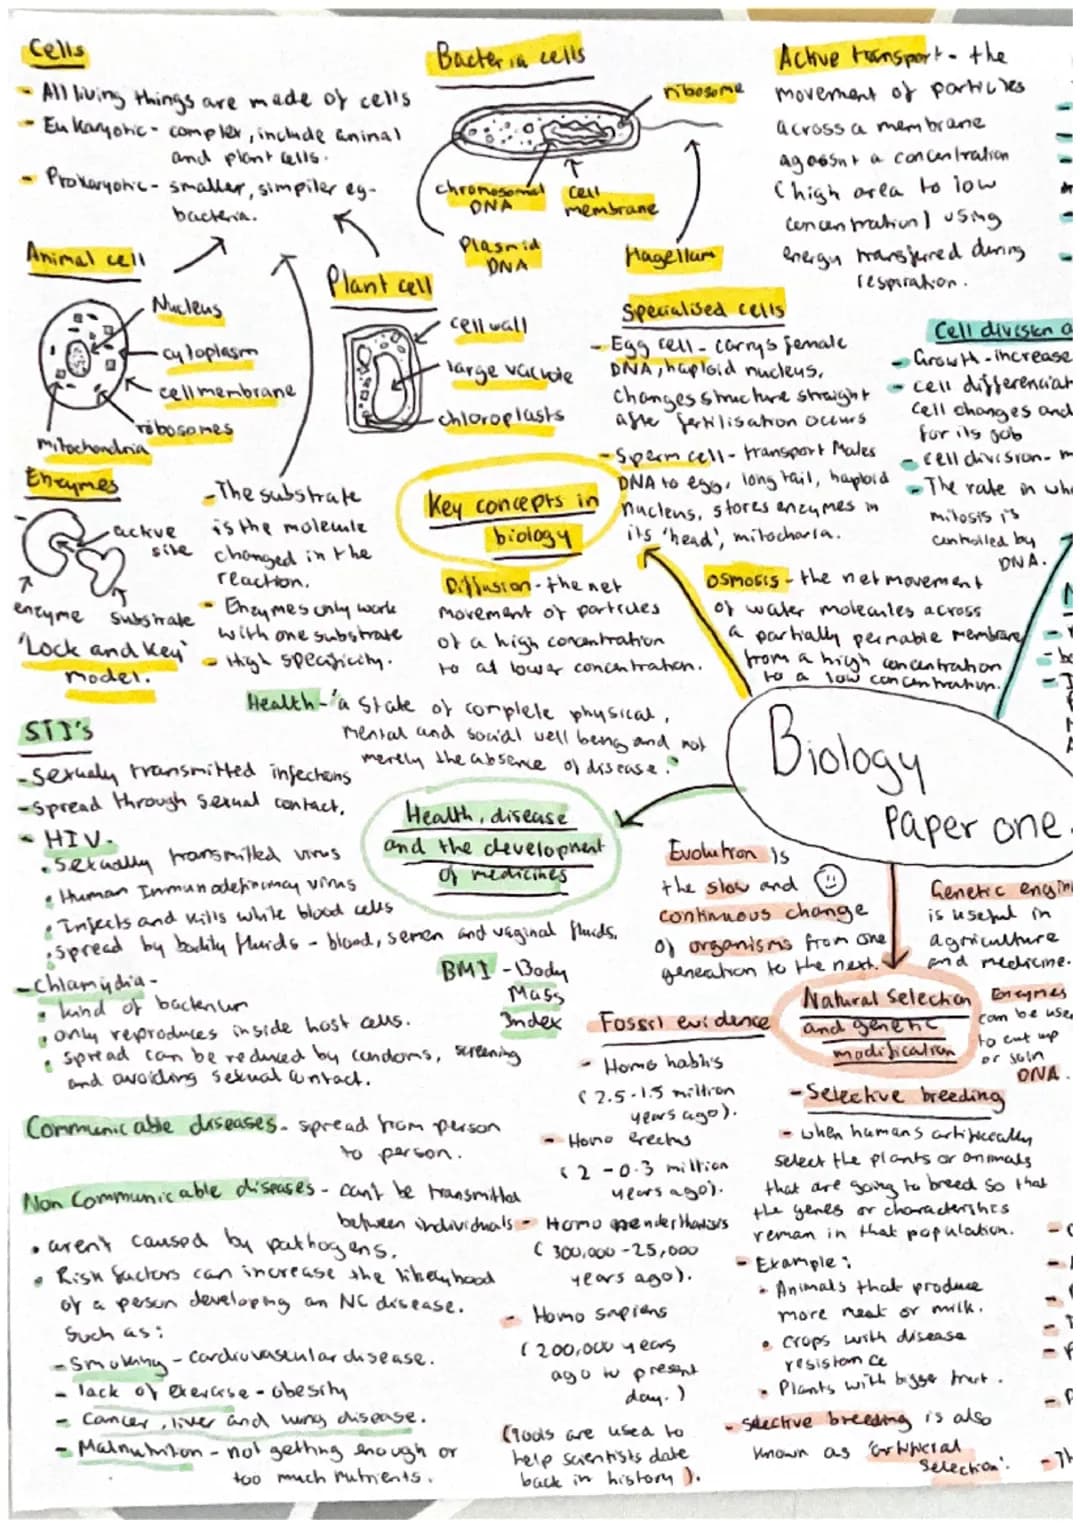 Cells
- All living things are made of cells
- Eukaryotic - complex, include animal
and plant cells.
- Prokaryotic - smaller, simpiler eg-
bacteria.
Bacteria cells
ribosome
chromosomal
DNA
cell
membrane
Plasmid
DNA
flagellum
Active transport - the
movement of particles
across a membrane
agaisnt a concentration
(high area to low
concentration) using
energy transferred during
respiration.
Animal cell
Nucleus
cytoplasm
cell membrane
ribosomes
mitochondria
Plant cell
cell wall
large vacuole
chloroplasts
Specialised cells
- Egg cell - carrys female
DNA, haploid nucleus,
changes structure straight
after fertilisation occurs
- Sperm cell - transport Males
DNA to egg, long tail, haploid
nucleus, stores enzymes in
its 'head', mitocharia.
Cell division a
- Growth - increase
- cell differenciat
cell changes and
for its job
- cell division - m
- The rate in wh
mitosis is
controlled by
DNA.
Enzymes
active
site
enzyme
substrate
'Lock and key'
model.
- The substrate
is the molecule
changed in the
reaction.
- Enzymes only work
with one substrate
- High specificity.
Key concepts in
biology
Diffusion - the net
movement of particles
of a high concentration
to at lower concentration.
Osmosis - the net movement
of water molecules across
a partially permable membrane
from a high concentration
to a low concentration.
Biology
Paper one.
Health - 'a state of complete physical,
mental and social well being and not
merely the absence of disease.'
STI's
- Sexually transmitted infections
- spread through sexual contact.
- HIV -
• Sexually transmitted virus
• Human Immunodeficiency virus
• Infects and kills white blood cells
• spread by bodily fluids - blood, semen and vaginal fluids.
- Chlamydia -
• kind of bacterium
• only reproduces inside host cells.
• spread can be reduced by condoms, screening
and avoiding sexual contact.
Health, disease
and the development
of medicines
BMI - Body
Mass
Index
Communicable diseases - spread from person
to person.
Non Communicable diseases - can't be transmitted
between individuals
• aren't caused by pathogens.
• Risk factors can increase the likelyhood
of a person developing an NC disease.
Such as:
- Smoking - cardiovascular disease.
- lack of exercise - obesity
- Cancer, liver and lung disease.
- Malnutrition - not getting enough or
too much nutrients.
Evolution is
the slow and
continuous change
of organisms from one
generation to the next.
Genetic engin
is useful in
agriculture
and medicine.
Enzymes
can be use
to cut up
or join
DNA.
Natural selection
and genetic
modification
Fossil evidence
- Homo habilis
(2.5-1.5 million
years ago).
- Homo erectus
(2 - 0.3 million
years ago).
- Homo
(300,000 - 25,000
years ago).
- Homo sapiens
(200,000 years
ago to present
day.)
(Tools are used to
help scientists date
back in history).
- Selective breeding
- when humans artifically
select the plants or animals
that are going to breed so that
the genes or characteristics
remain in that population.
- Example:
• Animals that produce
more meat or milk.
• Crops with disease
resistance
• Plants with bigger fruit.
- selective breeding is also
known as 'artificial
selection'.
- Th